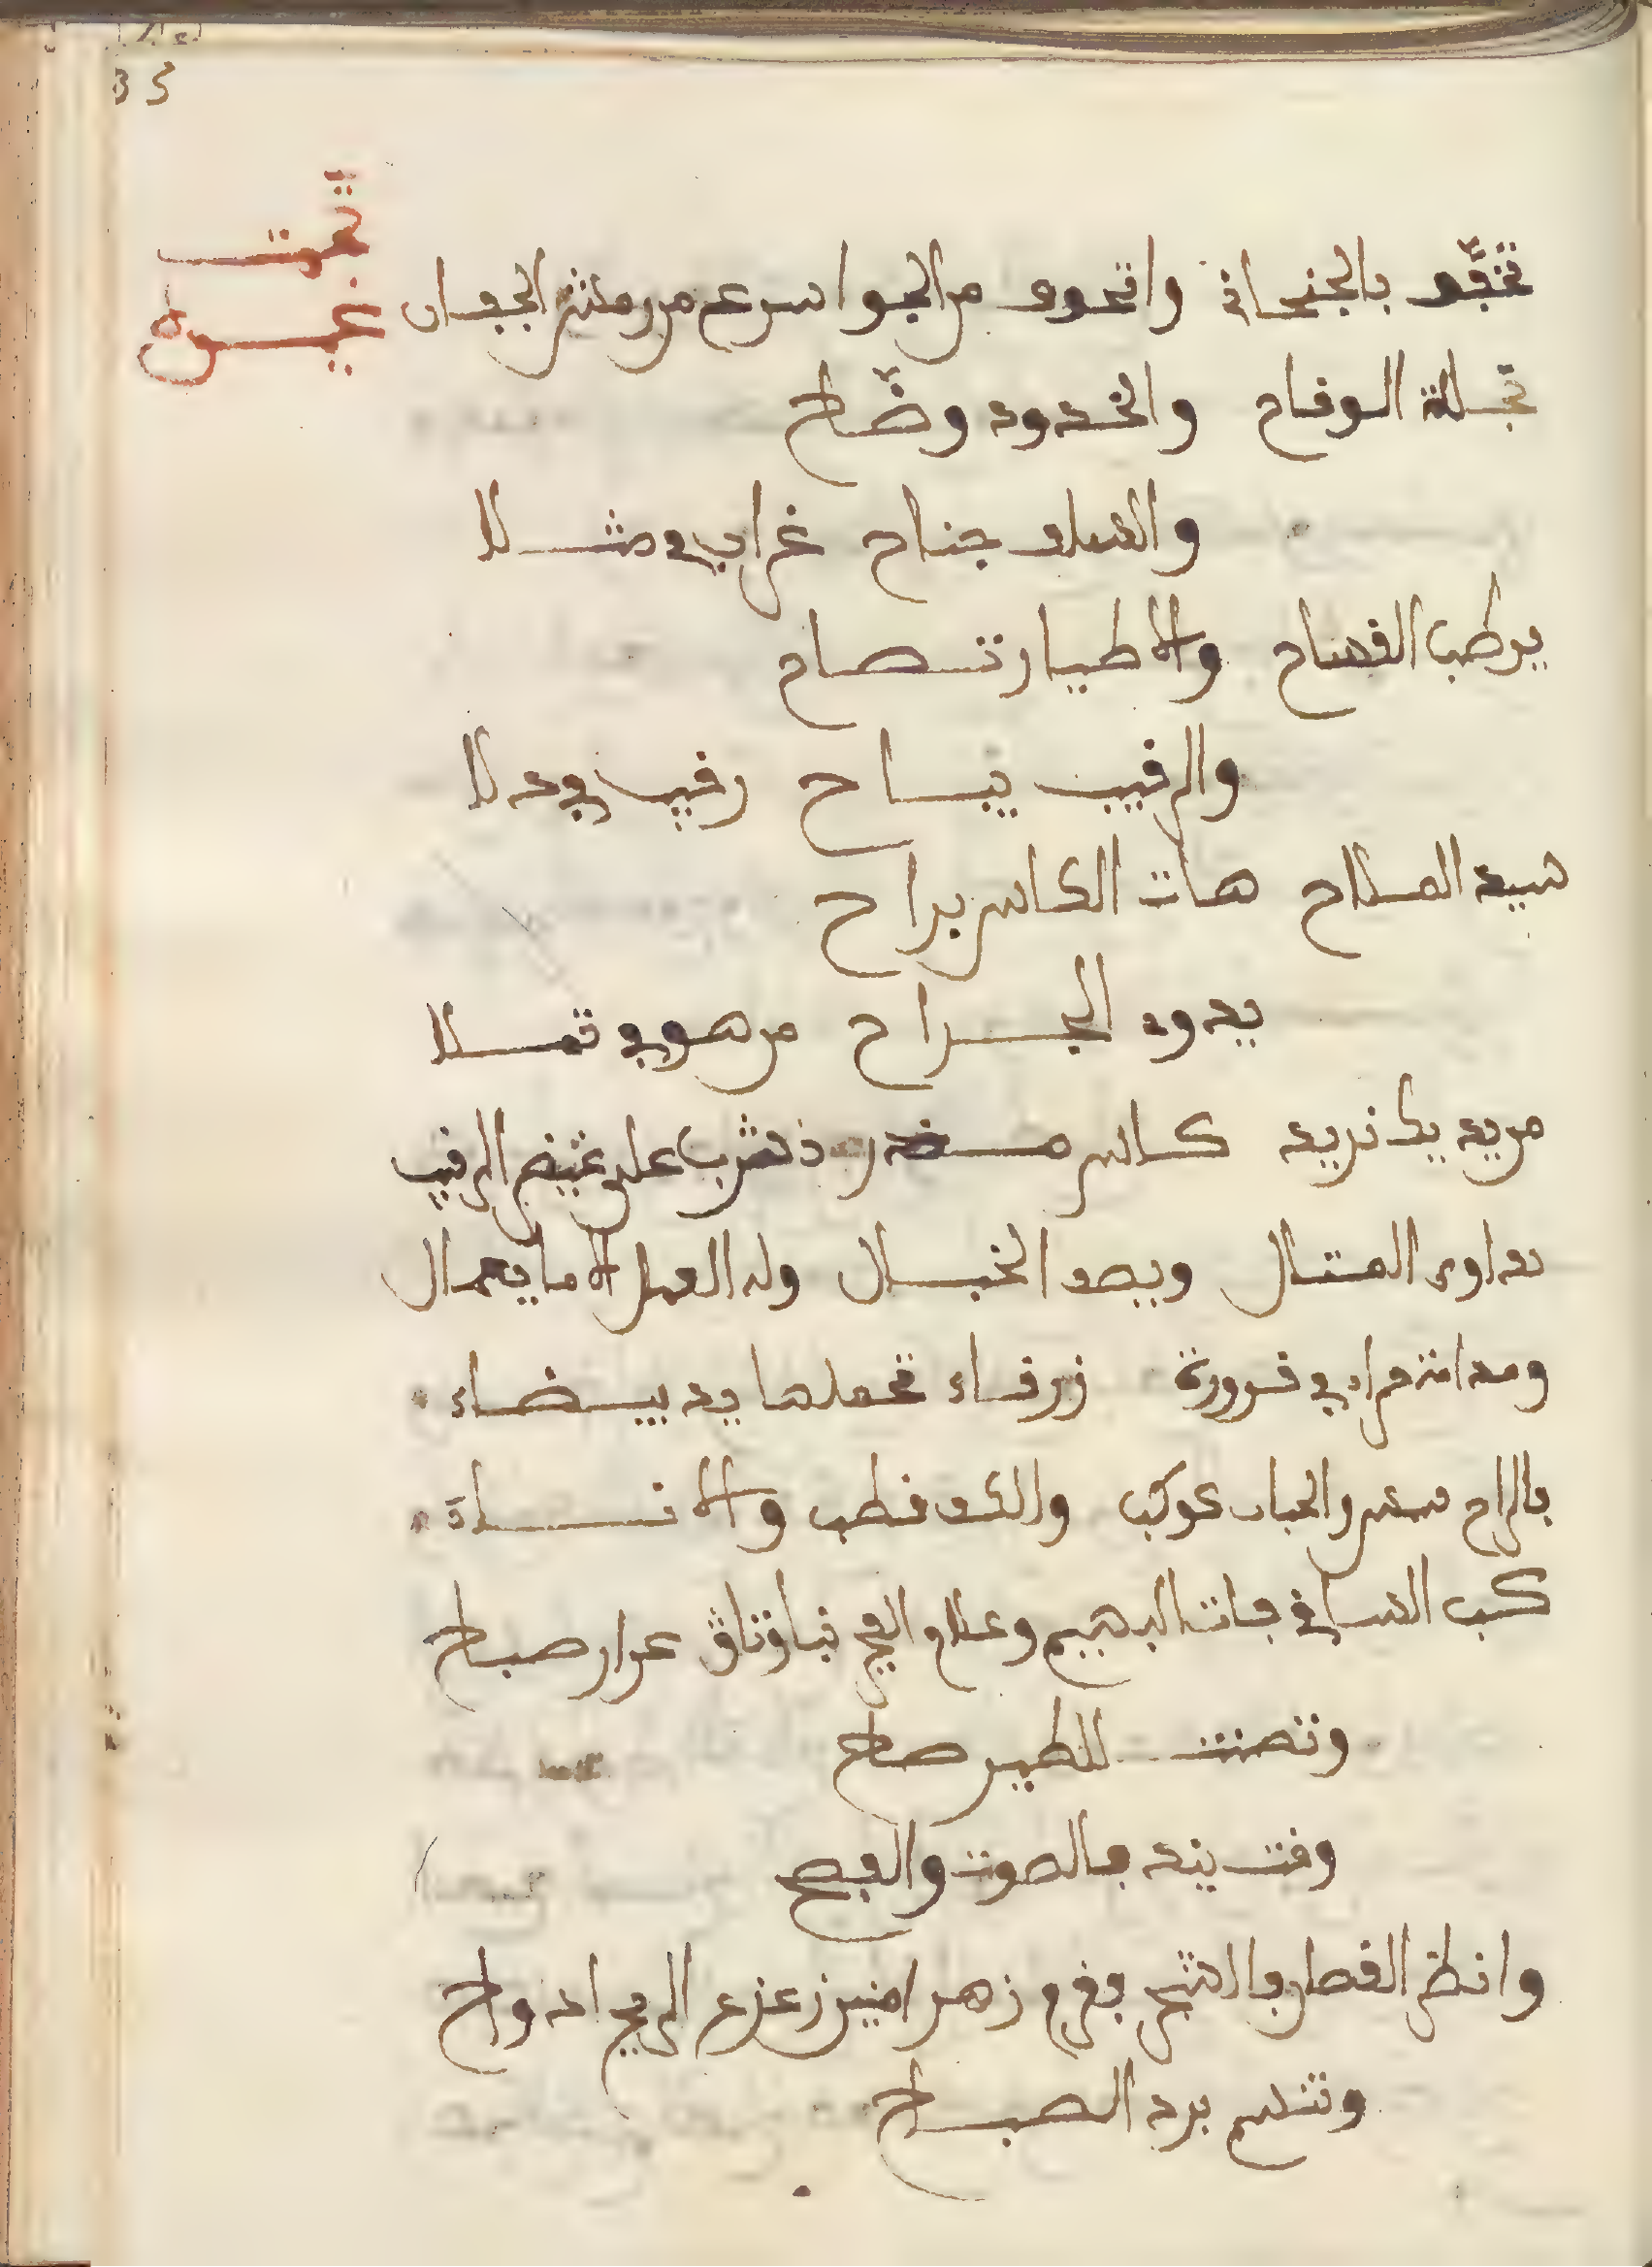 35
تمت
غيره
تخبّد بالجنحان واتحود من الجو اسرع من رمش الجفان
تجلة الوقاح والخدود وضّاح
والسلف جناح غراب في مثلا
يرطب الفصاح والاطيار تصاح
والرقيب يساح رقيب في دلا
سيد الملاح هات الكاس براح
يدوه الجراح من هو في تملا
من يد يك نريد كاس نشرب على غيض الرقيب
نداوي المتال ويصد الخبال وله العمل الا ما يعمال
ومدامة حرا في قرورة زرقاء تحملها يد بيضاء
فالراح شمس والحباب كوكب والكف قطب والانساء
كب الساقي فانت البهيم وعلاو الفج صباح
وتصنت للطير صاح
وقت ينده فالصوت والفصح
وانظر القطار فالشجر زهر امنير زعزع الريح ادواح
وتنسم برد الصباح